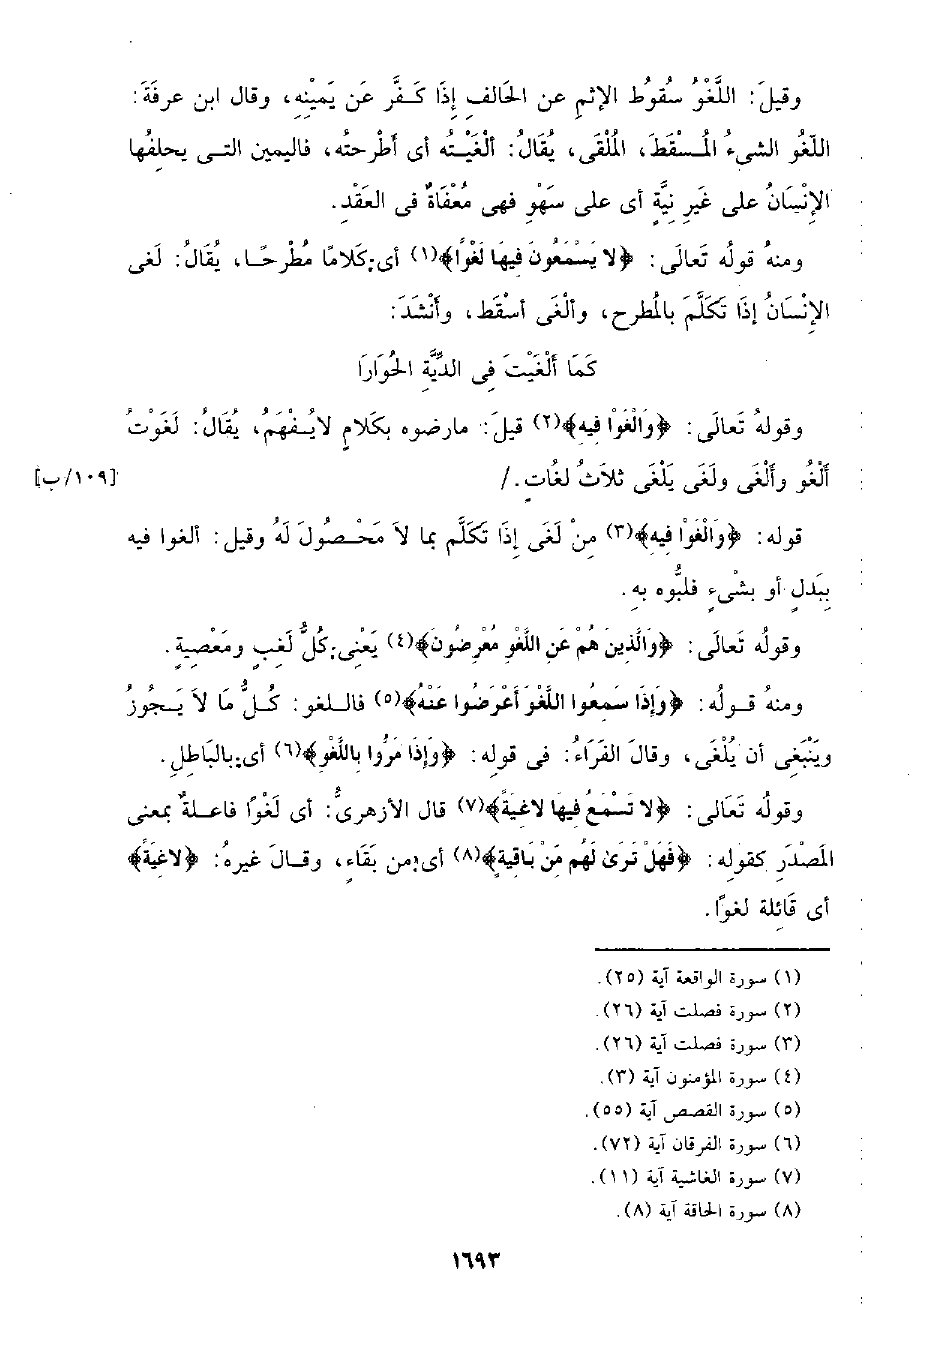 وقيلَ: اللَّغْوُ سُقوُطُ الإثمِ عن الحَالفِ إذَا كَـفَّر عَن يَمينْهِ، وقال ابن عرفَةَ:
اللّغُو الشىءُ المُـسْقَطَ، المُلْقَى، يُقَالُ: ألْغَيْـتُه أى أَطْرحتُه، فاليمين التـى يحلفُها
الإنْسَانُ على غَيرِ نِيَّةٍ أى على سَهْوِ فهى مُعْفَاةٌ فى العَقْدِ.
ومنهُ قولُه تَعالَى: ﴿لا يَسْمَعُونَ فيِهَا لَغْوًا﴾(١) أى:كَلامًا مُطْرحًـا، يُقَالُ: لَغى
الإنْسَانُ إذَا تَكَلَّمَ بالمُطرحِ، وألْغَى أسْقَط، وأنْشَدَ:
كَمَا ألْغَيْتَ فِى الدِّيَّةِ الحُوَارَا
وقولهُ تَعالَى: ﴿وَالْغَوْا فِيهِ﴾(٢) قيلَ: مارضوه بكَلامٍ لايُـفْهَمُ، يقَالُ: لَغَوْتُ
ألْغُو وألْغَى ولَغَى يَلْغَى ثلاَثُ لغُاتٍ./
[١٠٩/ب]
قوله: ﴿وَالْغَوْا فِيهِ﴾(٣) مِنْ لَغَى إذَا تَكَلَّم بما لاَ مَحْـصُولَ لَهُ وقيل: ألغوا فيه
بِبَدلٍ أو بشْىءٍ فلبُّوه بهِ.
وقولُه تَعالَى: ﴿وَالَّذِينَ هُمْ عَنِ اللَّغْوِ مُعْرِضُونَ﴾(٤) يَعْنِى:كُلُّ لَغِبٍ ومَعْصيةٍ.
ومنهُ قـولُه: ﴿وَإِذَا سَمِعُوا اللَّغْوَ أَعْرَضُوا عَنْهُ﴾(٥) فالـلغو: كُـلُّ مَا لاَ يَـجُوزُ
ويَنْبَغِى أن يُلْغَى، وقالَ الفَرَاءُ: فى قوله: ﴿وَإِذَا مَرُّوا بِاللَّغْوِ﴾(٦) أى:بالبَاطلِ.
وقولُه تَعَالى: ﴿لا تَسْمَعُ فِيهَا لاغِيَةً﴾(٧) قال الأزهرىُّ: أى لَغْوًا فاعـلةٌ بمعنى
المَصْدَرِ كقولِه: ﴿فَهَلْ تَرَىٰ لَهُم مِّنْ بَاقِيَةٍ﴾(٨) أى:من بَقَاءٍ، وقـالَ غيرهُ: ﴿لاغِيَةً﴾
أى قَائلةِ لغوًا.
(١) سورة الواقعة آية (٢٥).
(٢) سورة فصلت آية (٢٦).
(٣) سورة فصلت آية (٢٦).
(٤) سورة المؤمنون آية (٣).
(٥) سورة القصص آية (٥٥).
(٦) سورة الفرقان آية (٧٢).
(٧) سورة الغاشية آية (١١).
(٨) سورة الحاقة آية (٨).
١٦٩٣